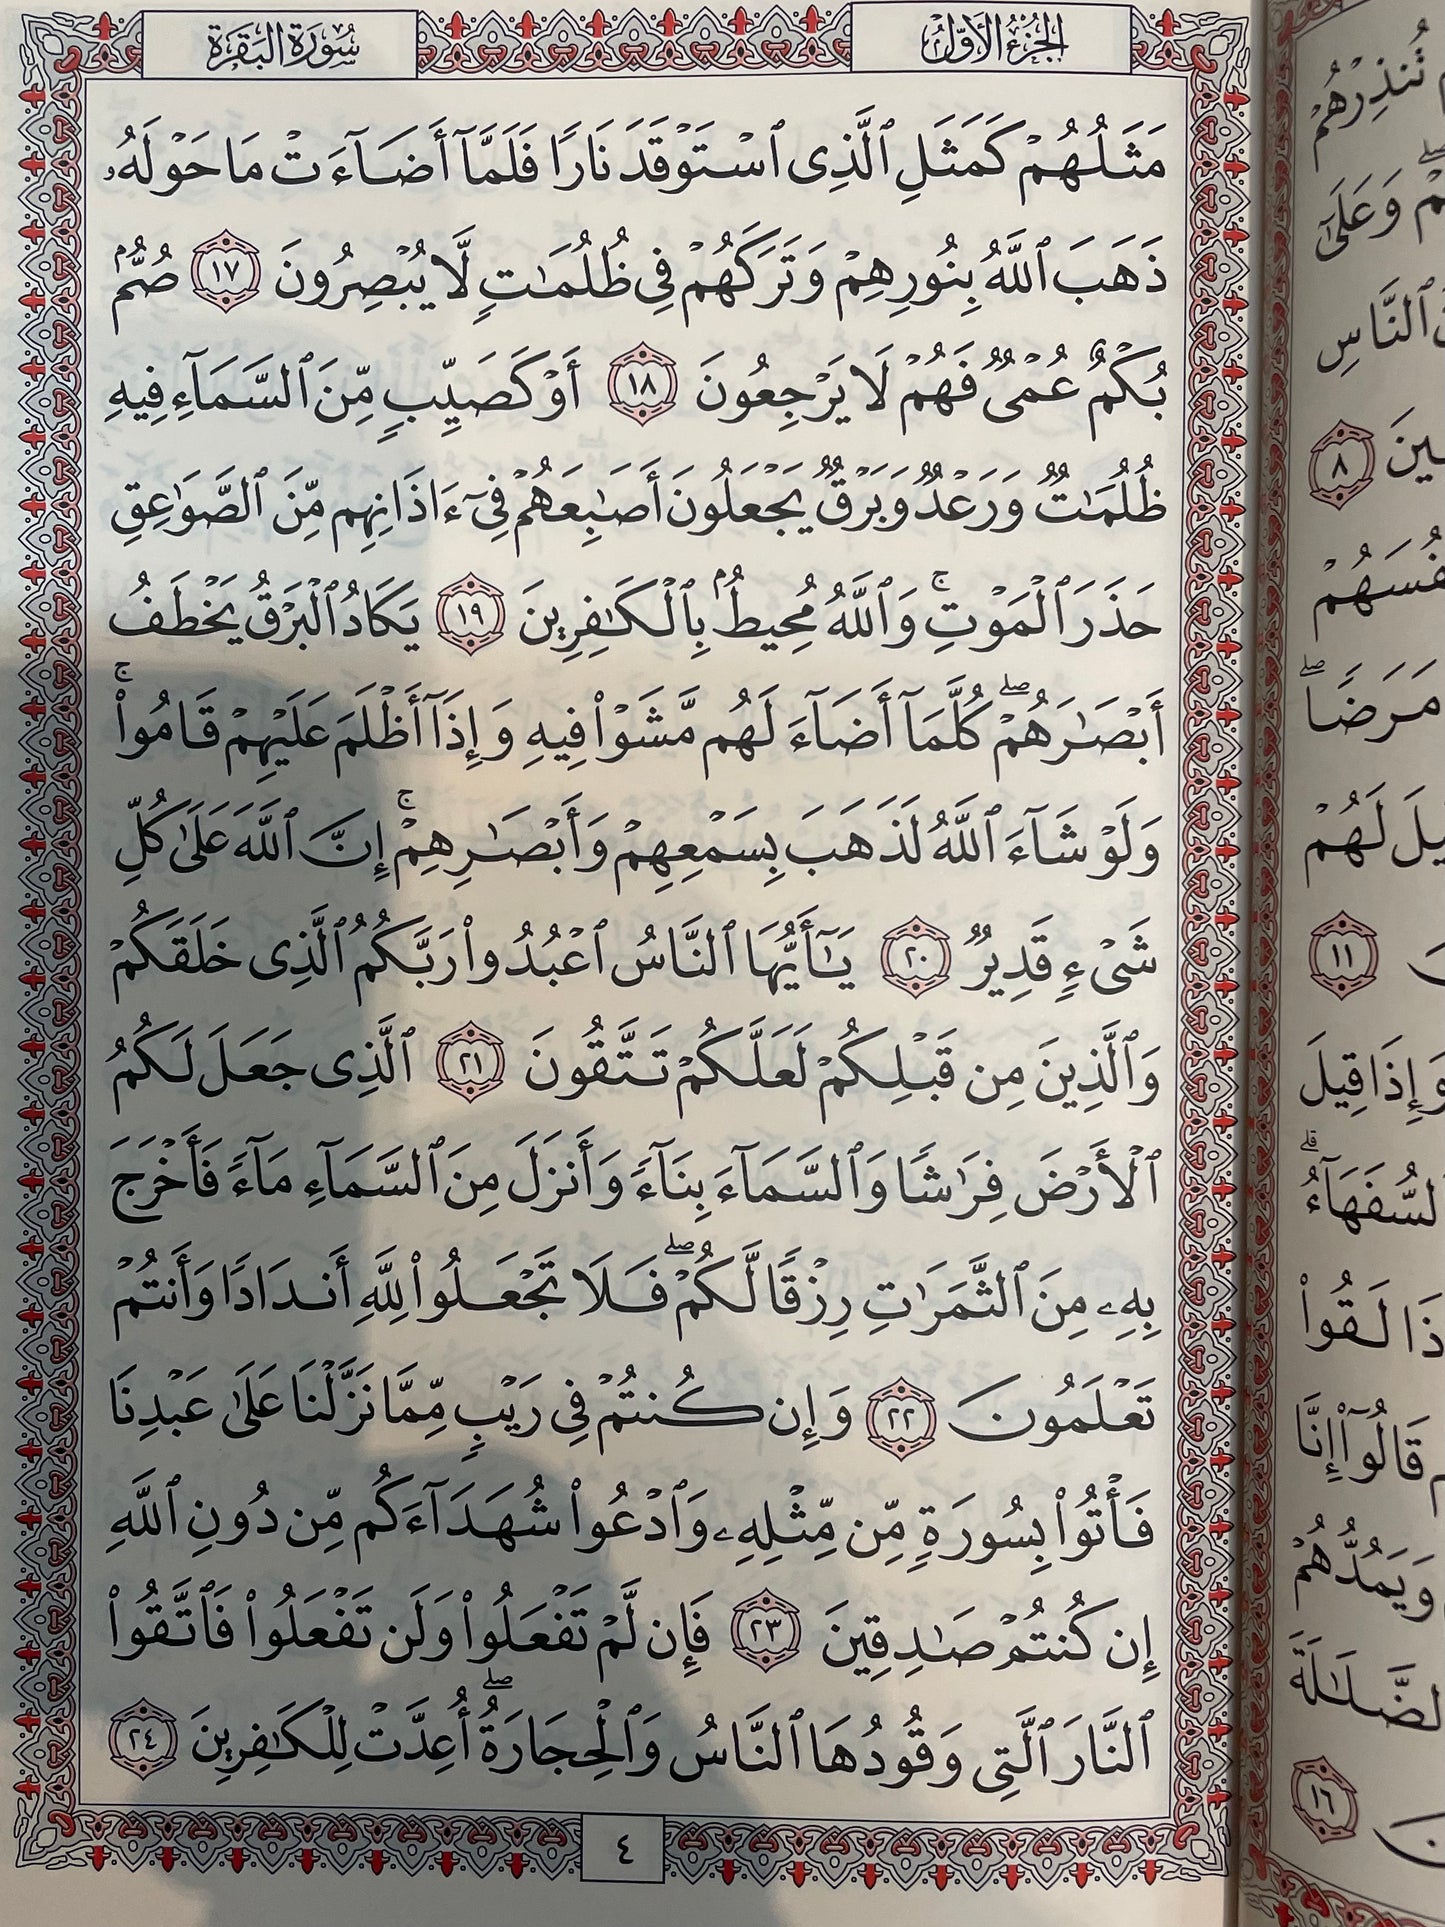 الجزء الأول
سورة البقرة
مَثَلُهُمْ كَمَثَلِ ٱلَّذِى ٱسْتَوْقَدَ نَارًا فَلَمَّآ أَضَآءَتْ مَا حَوْلَهُۥ
ذَهَبَ ٱللَّهُ بِنُورِهِمْ وَتَرَكَهُمْ فِى ظُلُمَٰتٍ لَّا يُبْصِرُونَ ١٧ صُمٌّۢ
بُكْمٌ عُمْىٌ فَهُمْ لَا يَرْجِعُونَ ١٨ أَوْ كَصَيِّبٍ مِّنَ ٱلسَّمَآءِ فِيهِ
ظُلُمَٰتٌ وَرَعْدٌ وَبَرْقٌ يَجْعَلُونَ أَصَٰبِعَهُمْ فِىٓ ءَاذَانِهِم مِّنَ ٱلصَّوَٰعِقِ
حَذَرَ ٱلْمَوْتِ ۚ وَٱللَّهُ مُحِيطٌۢ بِٱلْكَٰفِرِينَ ١٩ يَكَادُ ٱلْبَرْقُ يَخْطَفُ
أَبْصَٰرَهُمْ ۖ كُلَّمَآ أَضَآءَ لَهُم مَّشَوْا۟ فِيهِ وَإِذَآ أَظْلَمَ عَلَيْهِمْ قَامُوا۟ ۚ
وَلَوْ شَآءَ ٱللَّهُ لَذَهَبَ بِسَمْعِهِمْ وَأَبْصَٰرِهِمْ ۚ إِنَّ ٱللَّهَ عَلَىٰ كُلِّ
شَىْءٍ قَدِيرٌ ٢٠ يَٰٓأَيُّهَا ٱلنَّاسُ ٱعْبُدُوا۟ رَبَّكُمُ ٱلَّذِى خَلَقَكُمْ
وَٱلَّذِينَ مِن قَبْلِكُمْ لَعَلَّكُمْ تَتَّقُونَ ٢١ ٱلَّذِى جَعَلَ لَكُمُ
ٱلْأَرْضَ فِرَٰشًا وَٱلسَّمَآءَ بِنَآءً وَأَنزَلَ مِنَ ٱلسَّمَآءِ مَآءً فَأَخْرَجَ
بِهِۦ مِنَ ٱلثَّمَرَٰتِ رِزْقًا لَّكُمْ ۖ فَلَا تَجْعَلُوا۟ لِلَّهِ أَندَادًا وَأَنتُمْ
تَعْلَمُونَ ٢٢ وَإِن كُنتُمْ فِى رَيْبٍ مِّمَّا نَزَّلْنَا عَلَىٰ عَبْدِنَا
فَأْتُوا۟ بِسُورَةٍ مِّن مِّثْلِهِۦ وَٱدْعُوا۟ شُهَدَآءَكُم مِّن دُونِ ٱللَّهِ
إِن كُنتُمْ صَٰدِقِينَ ٢٣ فَإِن لَّمْ تَفْعَلُوا۟ وَلَن تَفْعَلُوا۟ فَٱتَّقُوا۟
ٱلنَّارَ ٱلَّتِى وَقُودُهَا ٱلنَّاسُ وَٱلْحِجَارَةُ ۖ أُعِدَّتْ لِلْكَٰفِرِينَ ٢٤
٤
تُنذِرْهُمْ
وَعَلَىٰٓ
ٱلنَّاسِ
٨
مَرَضًا ۖ
لَهُمْ
١١
وَإِذَا قِيلَ
لَقُوا۟
قَالُوٓا۟ إِنَّا
وَيَمُدُّهُمْ
١٦